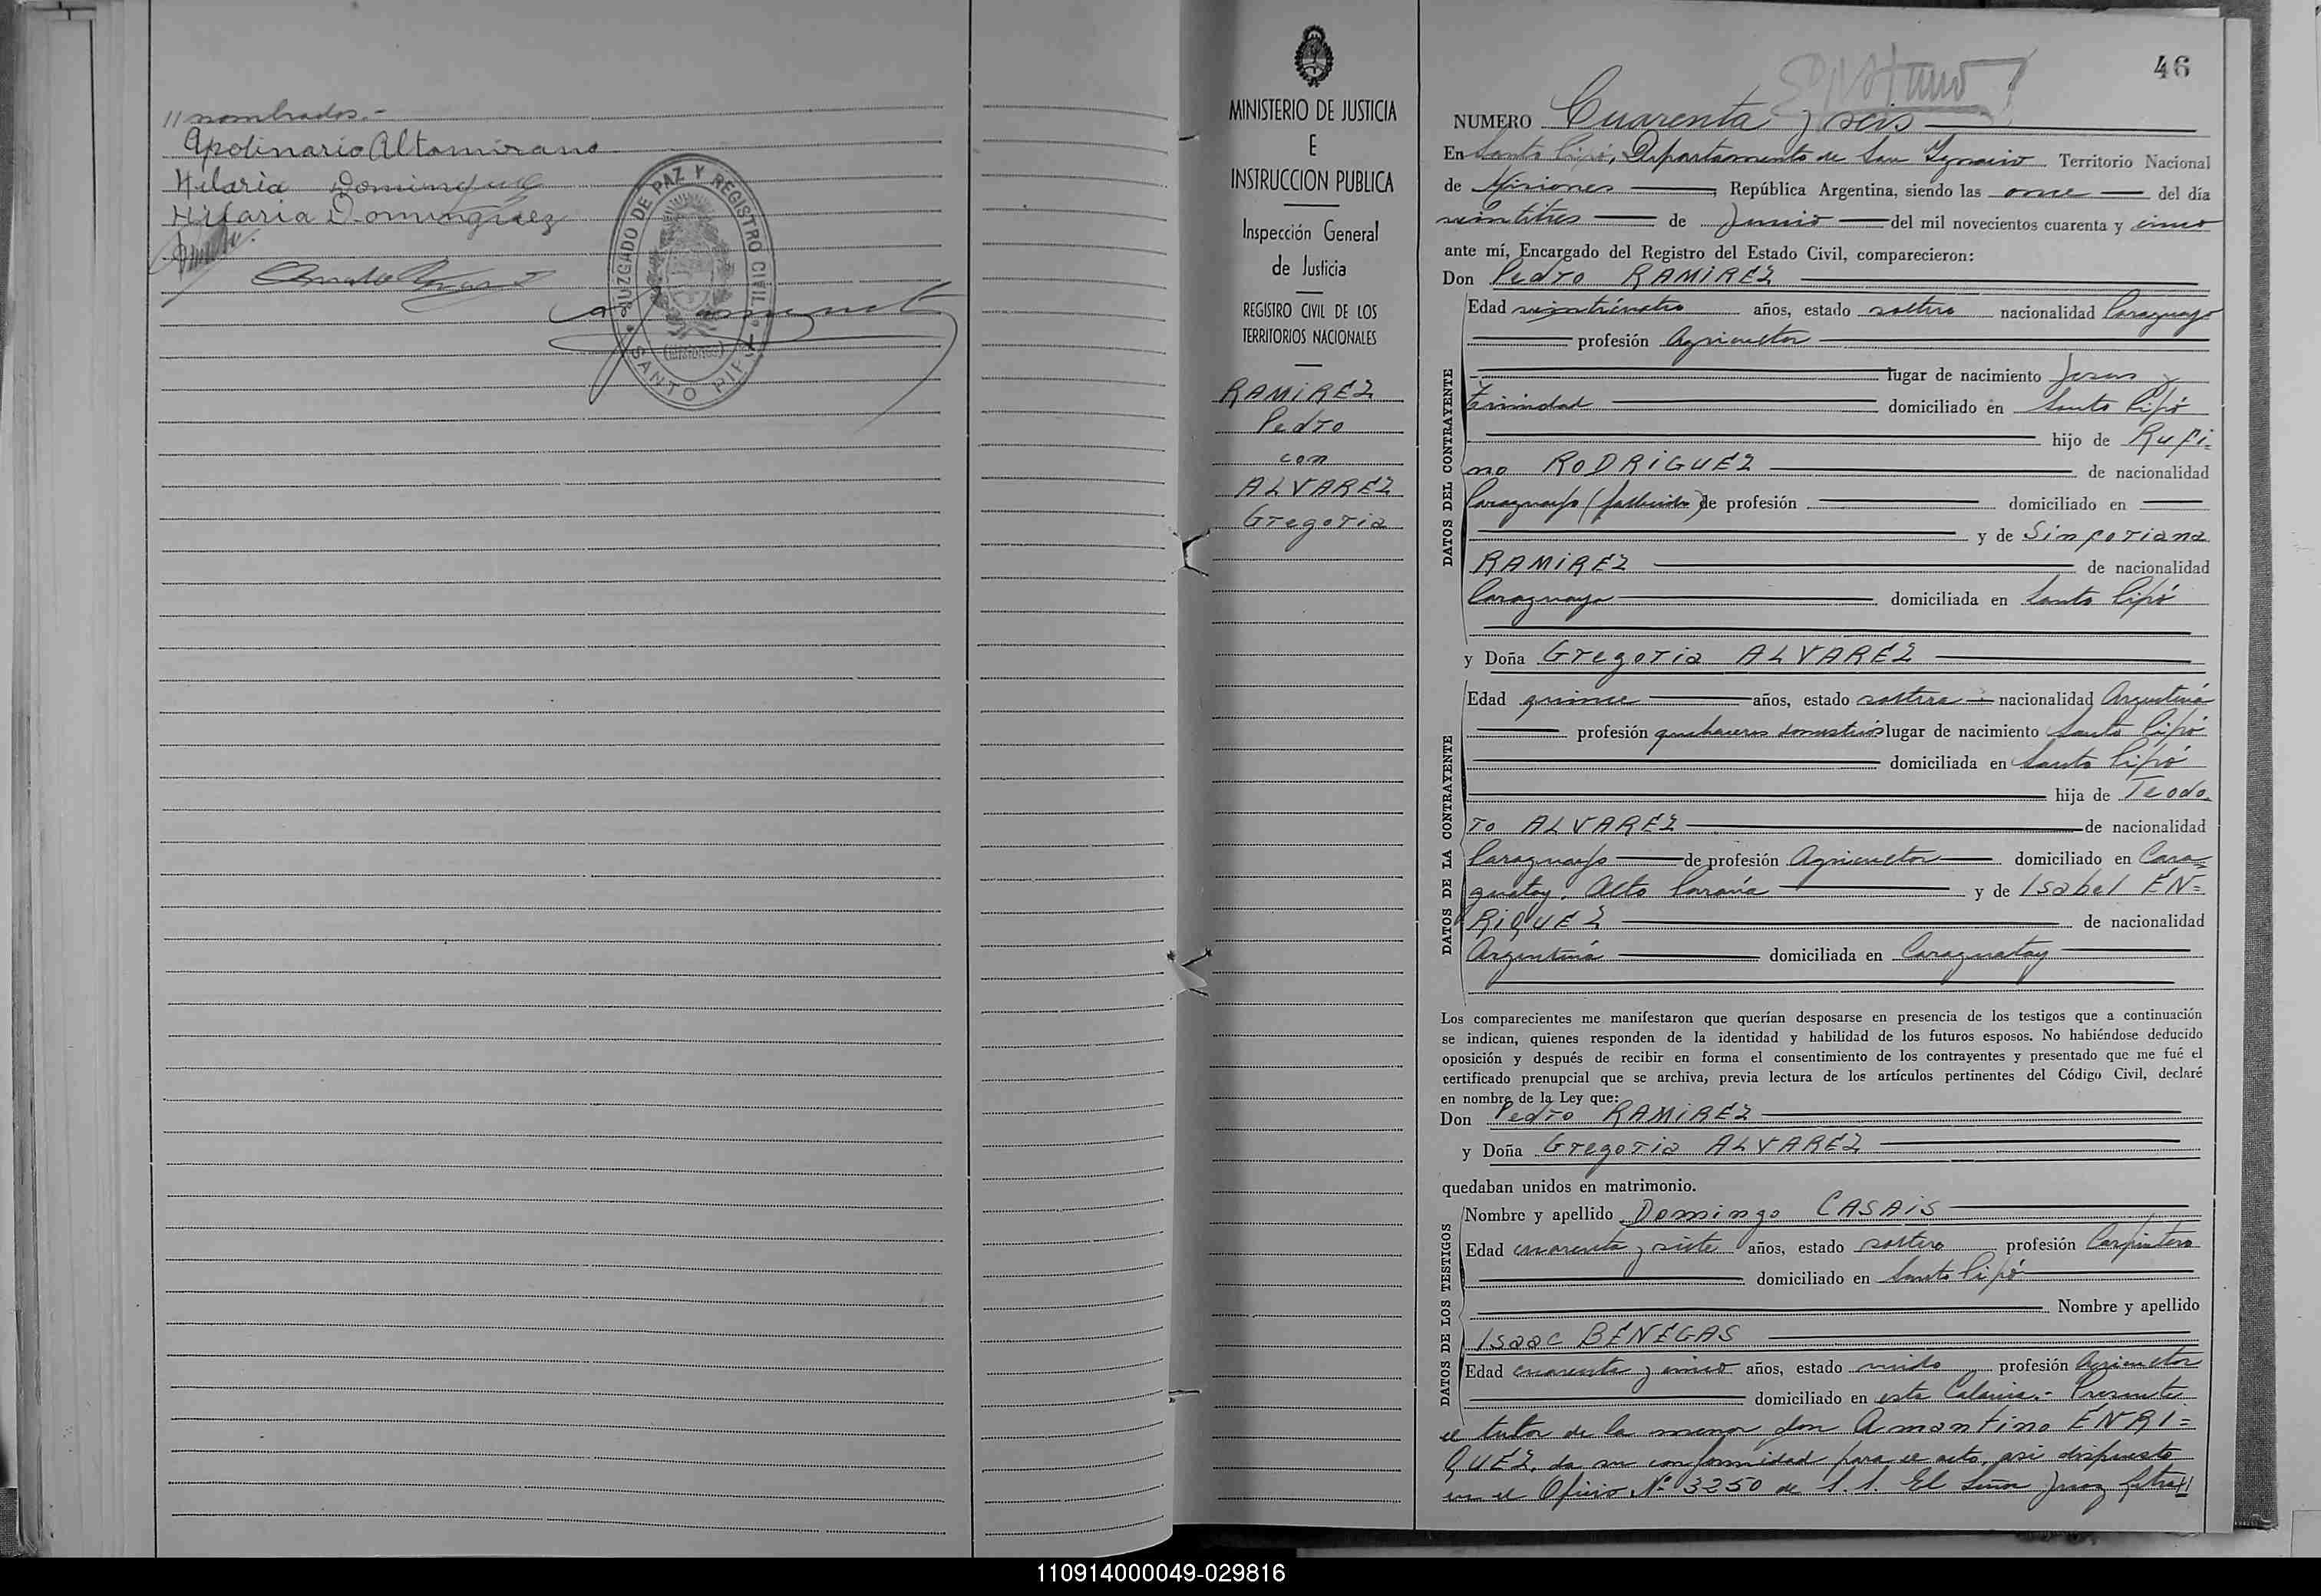 //nombrados.-
Apolinario Altamirano
Hilaria Dominguez
Hilaria Dominguez
JUZGADO DE PAZ Y REGISTRO CIVIL
(MISIONES)
SANTO PIPÓ
MINISTERIO DE JUSTICIA
E
INSTRUCCION PUBLICA
Inspección General
de Justicia
REGISTRO CIVIL DE LOS
TERRITORIOS NACIONALES
RAMIREZ
Pedro
con
ALVAREZ
Gregoria
46
NUMERO Cuarenta y seis
En Santo Pipó, Departamento de San Ignacio Territorio Nacional
de Misiones, República Argentina, siendo las once del día
veintitres de Junio del mil novecientos cuarenta y cinco
ante mí, Encargado del Registro del Estado Civil, comparecieron:
Don Pedro RAMIREZ
DATOS DEL CONTRAYENTE
Edad veinticuatro años, estado soltero nacionalidad Paraguayo
profesión Agricultor
lugar de nacimiento Jesus y
Trinidad domiciliado en Santo Pipó
hijo de Rufi=
no RODRIGUEZ de nacionalidad
Paraguayo (fallecido) de profesión domiciliado en
y de Sinforiana
RAMIREZ de nacionalidad
Paraguaya domiciliada en Santo Pipó
y Doña Gregoria ALVAREZ
DATOS DE LA CONTRAYENTE
Edad quince años, estado soltera nacionalidad Argentina
profesión quehaceres domesticos lugar de nacimiento Santo Pipó
domiciliada en Santo Pipó
hija de Teodo
ro ALVAREZ de nacionalidad
Paraguayo de profesión Agricultor domiciliado en Cara
guatay, Alto Paraná y de Isabel EN=
RIQUEZ de nacionalidad
Argentina domiciliada en Caraguatay
Los comparecientes me manifestaron que querían desposarse en presencia de los testigos que a continuación
se indican, quienes responden de la identidad y habilidad de los futuros esposos. No habiéndose deducido
oposición y después de recibir en forma el consentimiento de los contrayentes y presentado que me fué el
certificado prenupcial que se archiva, previa lectura de los artículos pertinentes del Código Civil, declaré
en nombre de la Ley que:
Don Pedro RAMIREZ
y Doña Gregoria ALVAREZ
quedaban unidos en matrimonio.
DATOS DE LOS TESTIGOS
Nombre y apellido Domingo CASAIS
Edad cuarenta y siete años, estado soltero profesión Carpintero
domiciliado en Santo Pipó
Nombre y apellido
Isaac BENEGAS
Edad cuarenta y cinco años, estado viudo profesión Agricultor
domiciliado en esta Colonia.- Presente
el tutor de la menor don Amantino ENRI=
QUEZ, da su conformidad para el acto, asi dispuesto
en el Oficio Nº 3250 de S. S. El Señor Juez Letra//
110914000049-029816